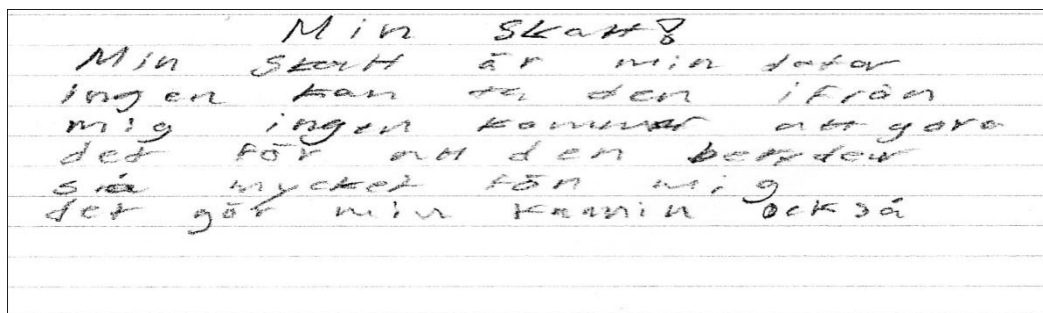 Min Skatt!
Min skatt är min dator
ingen kan ta den ifrån
mig ingen kommer att göra
det för att den betyder
så mycket för mig
det gör min kannin också